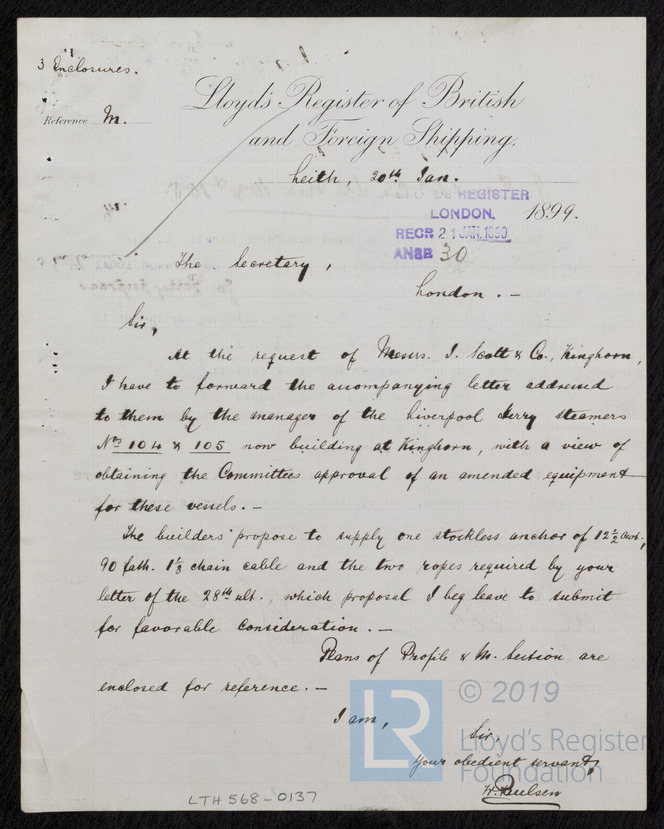 3 Enclosures.
Reference M.
Lloyd's Register of British
and Foreign Shipping.
Leith, 20th Jan. 1899.
REGISTER
LONDON.
RECR 21 JAN. 1899
ANSR 30
The Secretary,
London. -
Sir,
At the request of Messrs. J. Scott & Co., Kinghorn,
I have to forward the accompanying letter addressed
to them by the manager of the Liverpool Ferry Steamers
Nos 104 & 105 now building at Kinghorn, with a view of
obtaining the Committees approval of an amended equipment
for these vessels. -
The builders' propose to supply one stockless anchor of 12 1/2 cwt.,
90 fath. chain cable and the two ropes required by your
letter of the 28th ult., which proposal I beg leave to submit
for favorable consideration. -
Plans of Profile & M. Section are
enclosed for reference. -
I am,
Sir,
Your obedient servant,
H. Paulsen
LTH568-0137
LR
© 2019
Lloyd's Register
Foundation